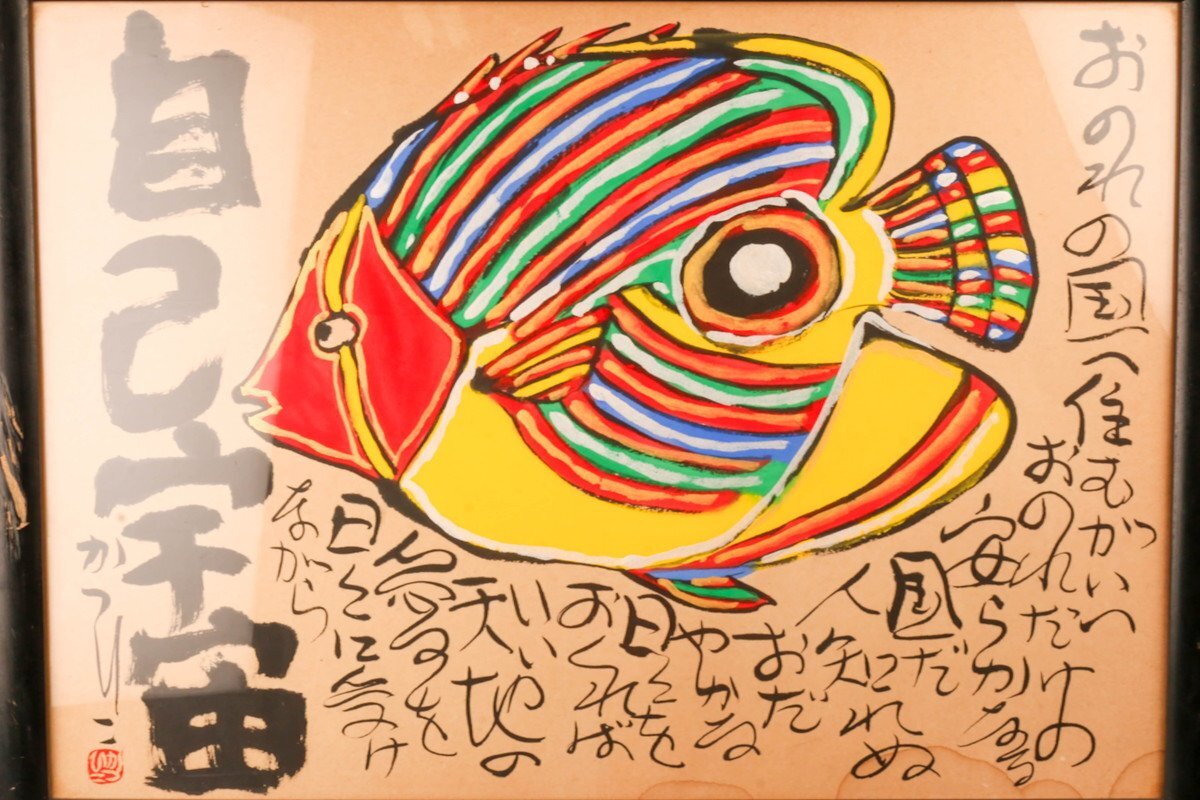 おのれの国へ住むがいい
おのれだけの
安らかなる
国だ
人知れぬ
おだ
やかな
日々を
おくれば
いい
天地の
を
日々に受け
ながら
自己宇宙